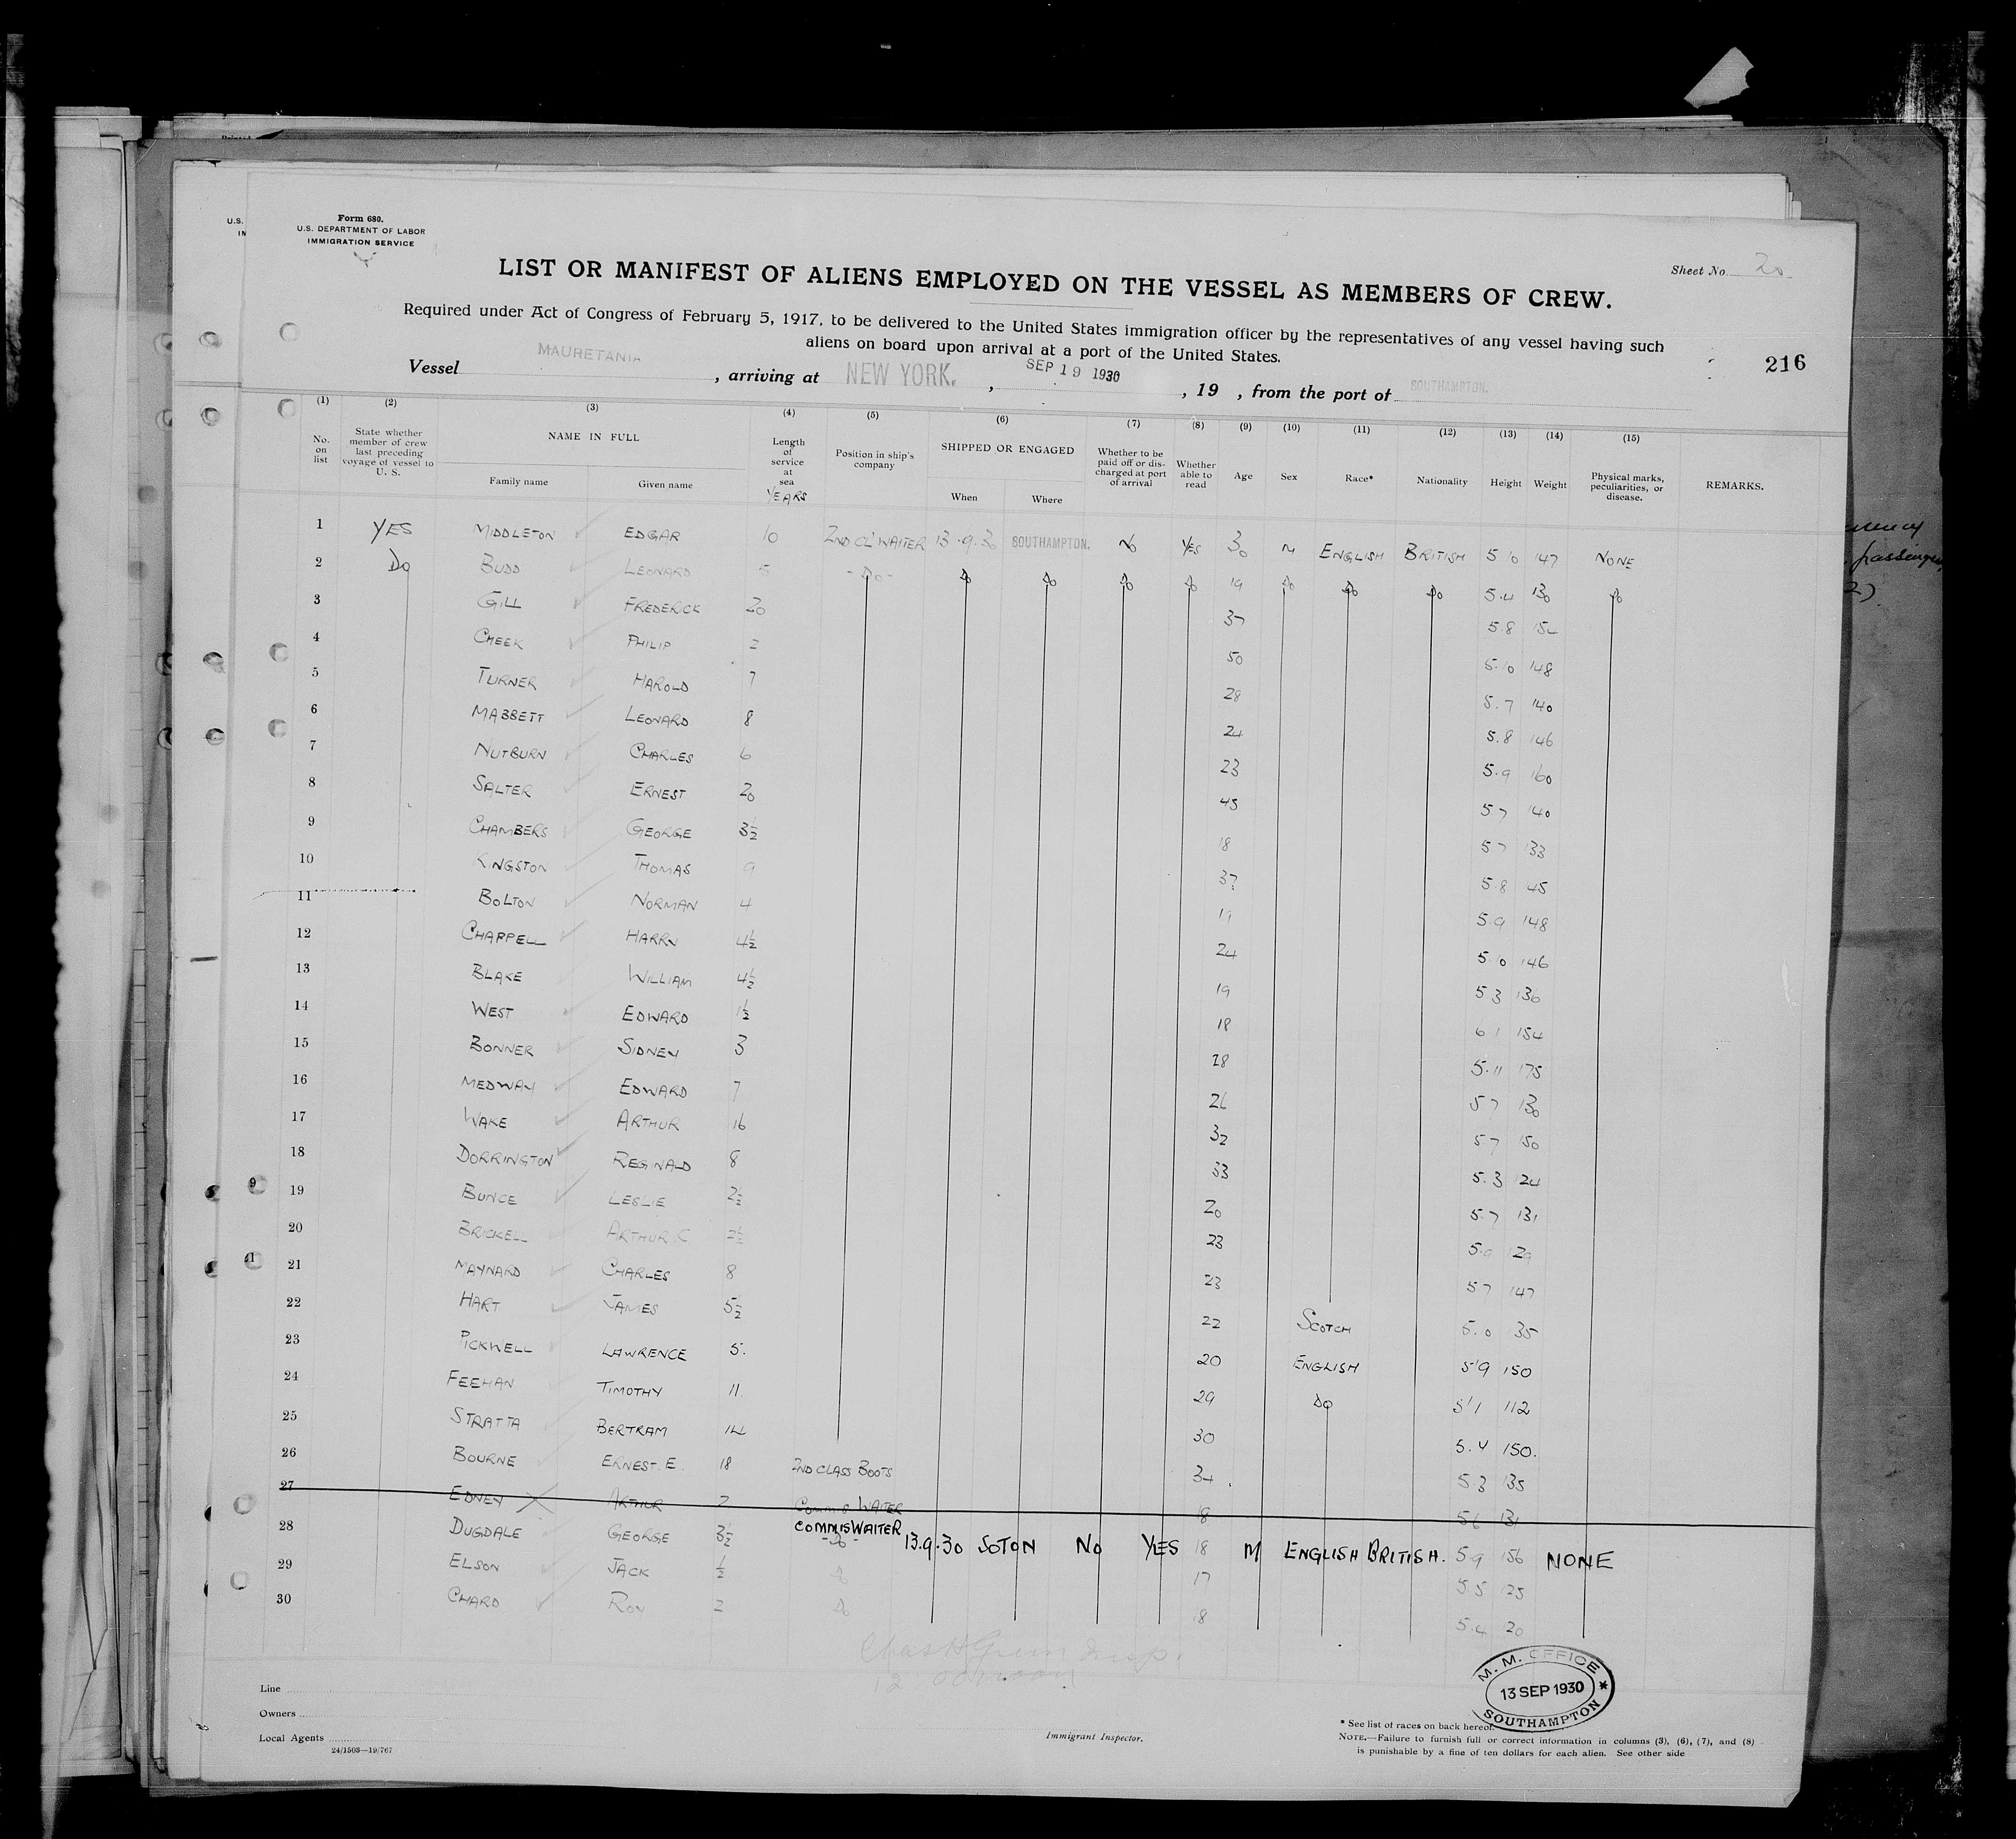 Form 680.
U.S. DEPARTMENT OF LABOR
IMMIGRATION SERVICE
U.S.
IN
LIST OR MANIFEST OF ALIENS EMPLOYED ON THE VESSEL AS MEMBERS OF CREW.
Sheet No. 20
Required under Act of Congress of February 5, 1917, to be delivered to the United States immigration officer by the representatives of any vessel having such
aliens on board upon arrival at a port of the United States.
216
Vessel MAURETANIA, arriving at NEW YORK., SEP 19 1930, 19 , from the port of SOUTHAMPTON.
(1) (2) (3) (4) (5) (6) (7) (8) (9) (10) (11) (12) (13) (14) (15)
No. on list
State whether member of crew last preceding voyage of vessel to U. S.
NAME IN FULL
Family name Given name
Length of service at sea YEARS
Position in ship's company
SHIPPED OR ENGAGED
When Where
Whether to be paid off or discharged at port of arrival
Whether able to read
Age
Sex
Race*
Nationality
Height
Weight
Physical marks, peculiarities, or disease.
REMARKS.
1 YES MIDDLETON EDGAR 10 2ND CL' WAITER 13.9.30 SOUTHAMPTON. No YES 30 M ENGLISH BRITISH 5 10 147 NONE
2 Do BUDD LEONARD 5 -Do- Do Do Do Do 19 Do Do Do 5.4 130 Do
3 GILL FREDERICK 20 37 5.8
4 CHEEK PHILIP 50 5.10 148
5 TURNER HAROLD 7 28 5.7 140
6 MABBETT LEONARD 8 24 5.8 146
7 NUTBURN CHARLES 6 23 5.9 160
8 SALTER ERNEST 20 45 5 7 140
9 CHAMBERS GEORGE 3½ 18 5 7 133
10 KINGSTON THOMAS 9 37 5.8 45
11 BOLTON NORMAN 4 19 5.9 148
12 CHAPPELL HARRY 4½ 24 5 10 146
13 BLAKE WILLIAM 4½ 19 5 3 130
14 WEST EDWARD 1½ 18 6 1 154
15 BONNER SIDNEY 3 28 5.11 175
16 MEDWAY EDWARD 7 26 5 7 130
17 WAKE ARTHUR 16 32 5 7 150
18 DORRINGTON REGINALD 8 33 5.3 124
19 BUNCE LESLIE 2½ 20 5.7 131
20 BRICKELL ARTHUR C 2½ 23 5.9 129
21 MAYNARD CHARLES 8 23 5 7 147
22 HART JAMES 5½ 22 SCOTCH 5.10 35
23 PICKWELL LAWRENCE 5. 20 ENGLISH 5'9 150
24 FEEHAN TIMOTHY 11. 29 Do 5'1 112
25 STRATTA BERTRAM 14 30 5.4 150.
26 BOURNE ERNEST. E. 18 2ND CLASS BOOTS 34. 5 3 135
27 EDNEY ARTHUR 2 COMMIS WAITER 18 5 6 131
28 DUGDALE GEORGE 3½ COMMIS WAITER -Do- 13.9.30 SOTON No YES 18 M ENGLISH BRITISH. 5 9 156 NONE
29 ELSON JACK ½ Do 17 5 5 125
30 CHARD ROY 2 Do 18 5.4 20
Chas H Green Insp.
M. M. OFFICE
13 SEP 1930
SOUTHAMPTON
Line
Owners
Local Agents
24/1503—19/767
Immigrant Inspector.
* See list of races on back hereof.
NOTE.—Failure to furnish full or correct information in columns (3), (6), (7), and (8)
is punishable by a fine of ten dollars for each alien. See other side
passenger